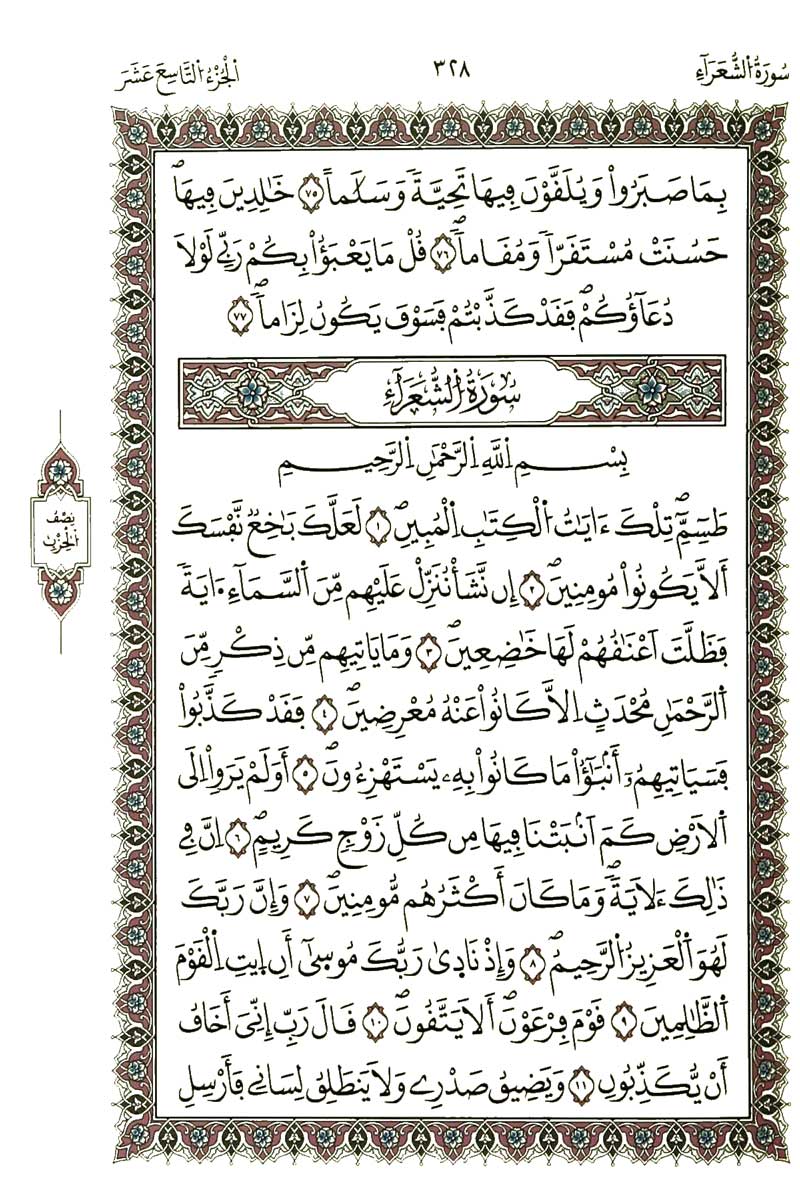 سُورَةُ الشُّعَرَآءِ
٣٢٨
الْجُزْءُ التَّاسِعَ عَشَرَ
بِمَا صَبَرُواْ وَيُلَقَّوْنَ فِيهَا تَحِيَّةً وَسَلَٰماً ٧٥ خَٰلِدِينَ فِيهَا
حَسُنَتْ مُسْتَقَرّاً وَمُقَاماً ٧٦ قُلْ مَا يَعْبَؤُاْ بِكُمْ رَبِّے لَوْلَا
دُعَآؤُكُمْ فَقَدْ كَذَّبْتُمْ فَسَوْفَ يَكُونُ لِزَاماً ٧٧
سُورَةُ الشُّعَرَآءِ
بِسْمِ اِللَّهِ اِلرَّحْمَٰنِ اِلرَّحِيمِ
طَسِمِّ تِلْكَ ءَايَٰتُ اُلْكِتَٰبِ اِلْمُبِينِ ١ لَعَلَّكَ بَٰخِعٌ نَّفْسَكَ
أَلَّا يَكُونُواْ مُومِنِينَ ٢ إِن نَّشَأْ نُنَزِّلْ عَلَيْهِم مِّنَ اَلسَّمَآءِ ءَايَةً
فَظَلَّتَ اَعْنَٰقُهُمْ لَهَا خَٰضِعِينَ ٣ وَمَا يَاتِيهِم مِّن ذِكْرٍ مِّنَ
اَلرَّحْمَٰنِ مُحْدَثٍ اِلَّا كَانُواْ عَنْهُ مُعْرِضِينَ ٤ فَقَدْ كَذَّبُواْ
فَسَيَاتِيهِمُۥٓ أَنۢبَٰٓؤُاْ مَا كَانُواْ بِهِۦ يَسْتَهْزِءُونَ ٥ أَوَلَمْ يَرَوِاْ اِلَى
اَلَارْضِ كَمَ اَنۢبَتْنَا فِيهَا مِن كُلِّ زَوْجٍ كَرِيمٍ ٦ اِنَّ فِے
ذَٰلِكَ ءَلَايَةً وَمَا كَانَ أَكْثَرُهُم مُّومِنِينَ ٧ وَإِنَّ رَبَّكَ
لَهُوَ اَلْعَزِيزُ اُلرَّحِيمُ ٨ وَإِذْ نَادٜيٰ رَبُّكَ مُوسٜيٰٓ أَنِ اِيتِ اِلْقَوْمَ
اَلظَّٰلِمِينَ ٩ قَوْمَ فِرْعَوْنَ أَلَا يَتَّقُونَ ١٠ قَالَ رَبِّ إِنِّيَ أَخَافُ
أَنْ يُّكَذِّبُونِ ١١ وَيَضِيقُ صَدْرِے وَلَا يَنطَلِقُ لِسَانِے فَأَرْسِلِ
نِصْفُ
الْحِزْبِ